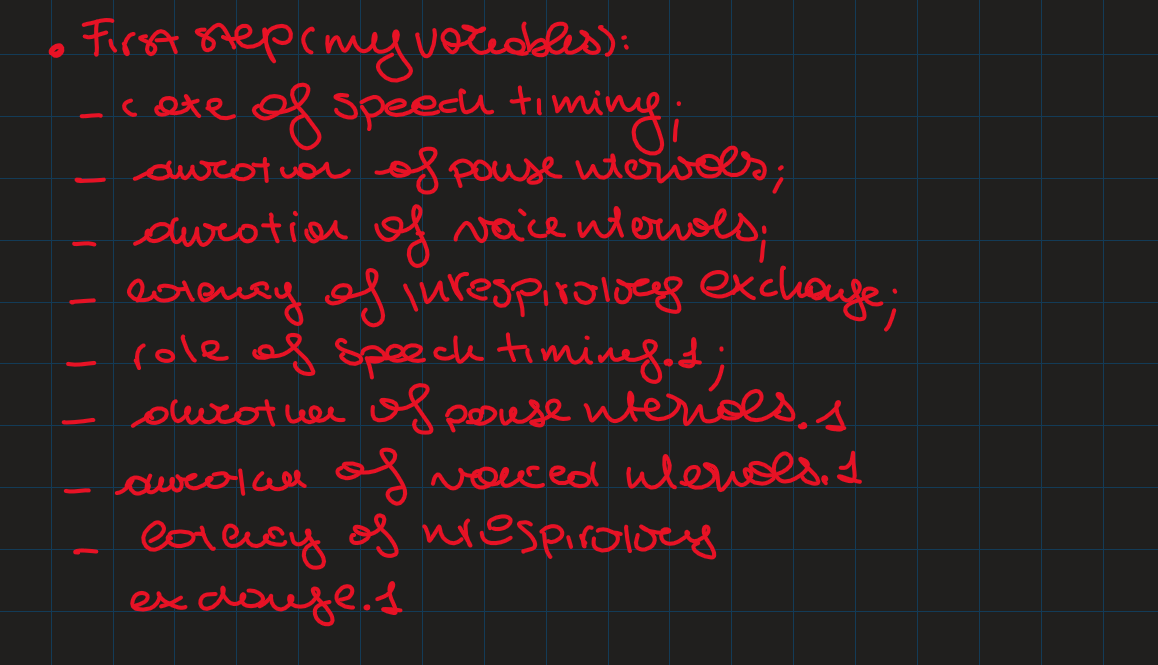 • First step (my variables):
- rate of speech timing;
- duration of pause intervals;
- duration of voice intervals;
- latency of inrespiratory exchange;
- rate of speech timing.1;
- duration of pause intervals.1
- duration of voiced intervals.1
- latency of respiratory
exchange.1